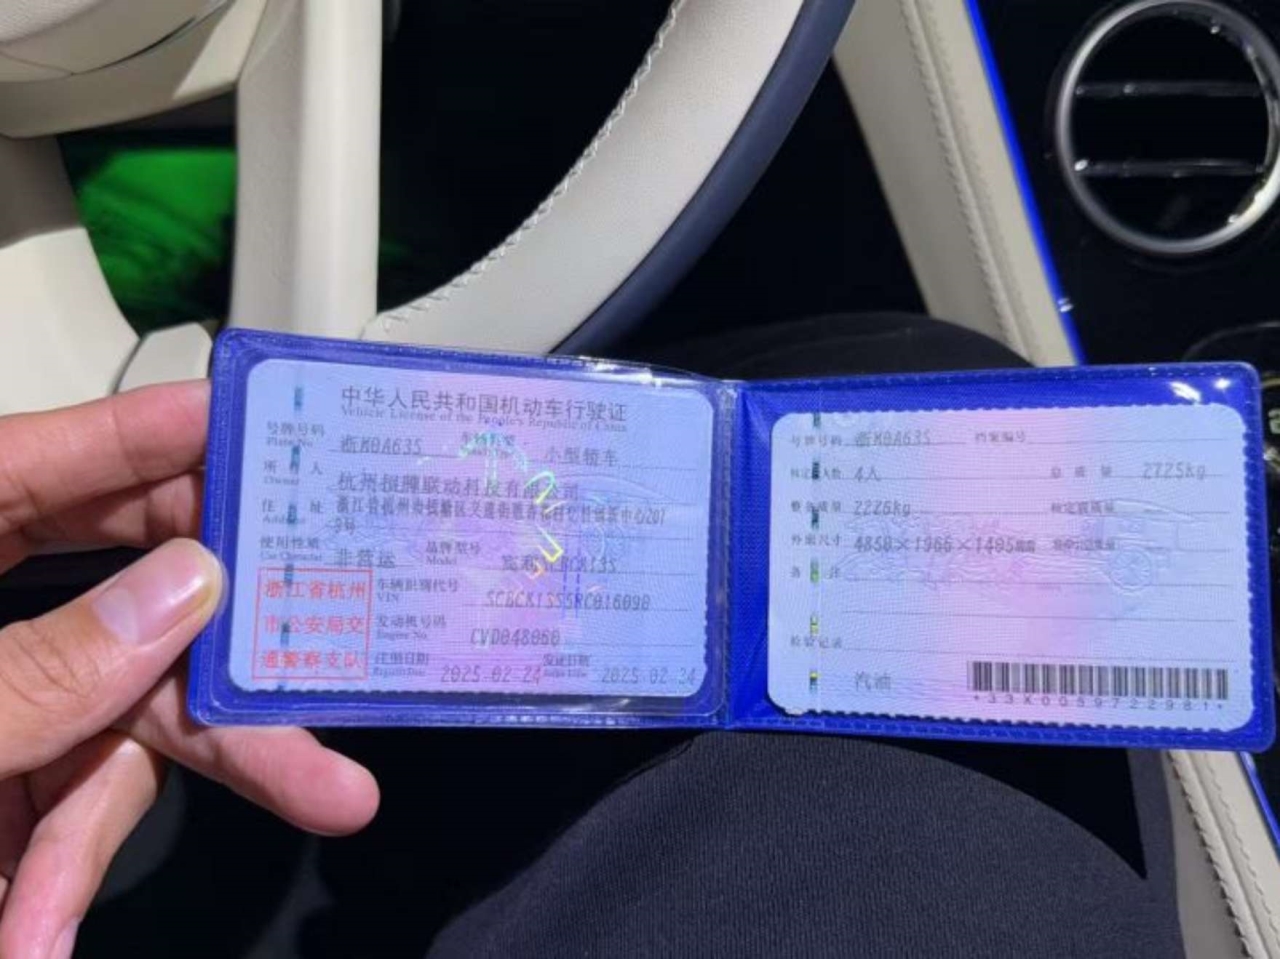 中华人民共和国机动车行驶证
Vehicle License of the People's Republic of China
号牌号码 浙M0A635 车辆类型 小型轿车
Plate No.
所有人
Owner
杭州 联动科技有限公司
住址
Address
浙江省杭州 207
使用性质 非营运 品牌型号 宾利
Use Character Model
浙江省杭州
市公安局交
通警察支队
车辆识别代号
VIN
发动机号码 CVD048060
Engine No.
注册日期 2025-02-24 发证日期 2025-02-24
号牌号码 浙M0A635 档案编号
核定载人数 4人 总质量 2725kg
整备质量 2226kg 核定载质量
外廓尺寸 4850×1966×1405mm
备注
检验记录
汽油
*33X0059722981*